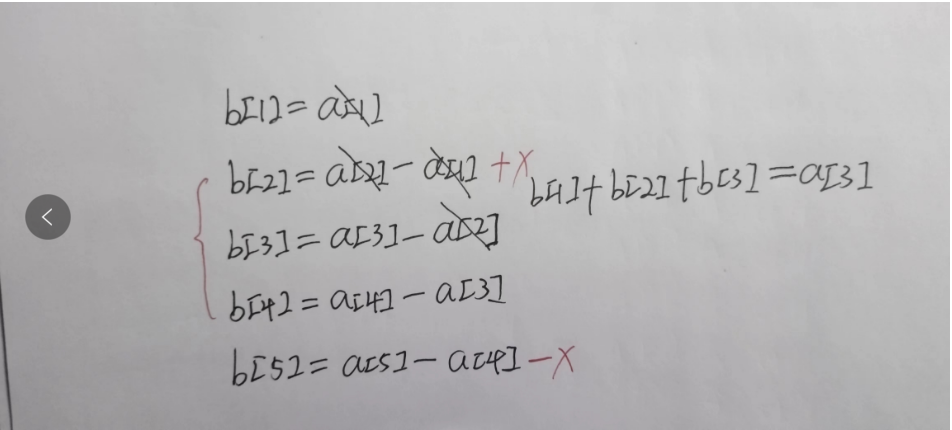 b[1]=a[1]
b[2]=a[2]-a[1]+x
b[1]+b[2]+b[3]=a[3]
b[3]=a[3]-a[2]
b[4]=a[4]-a[3]
b[5]=a[5]-a[4]-x